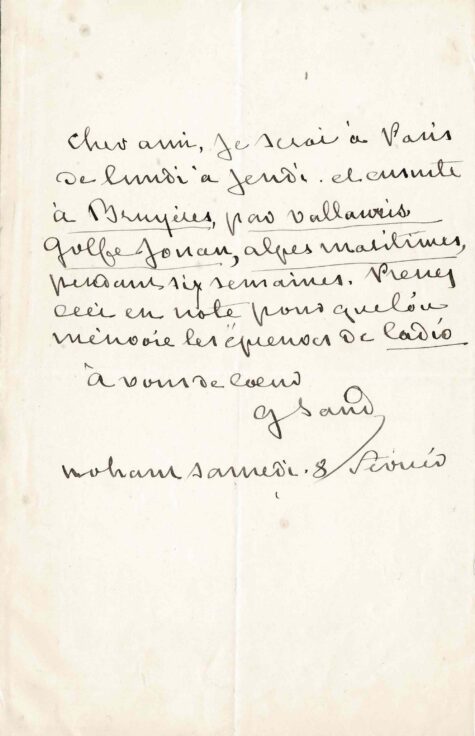 cher ami, je serai à Paris
de lundi à jeudi. et ensuite
à Bruyères, par vallauris
golfe Jouan, alpes maritimes,
pendant six semaines. Prenez
ceci en note pour que l'on
m'envoie les épreuves de Cadio
à vous de coeur
G Sand
nohant samedi. 8 février